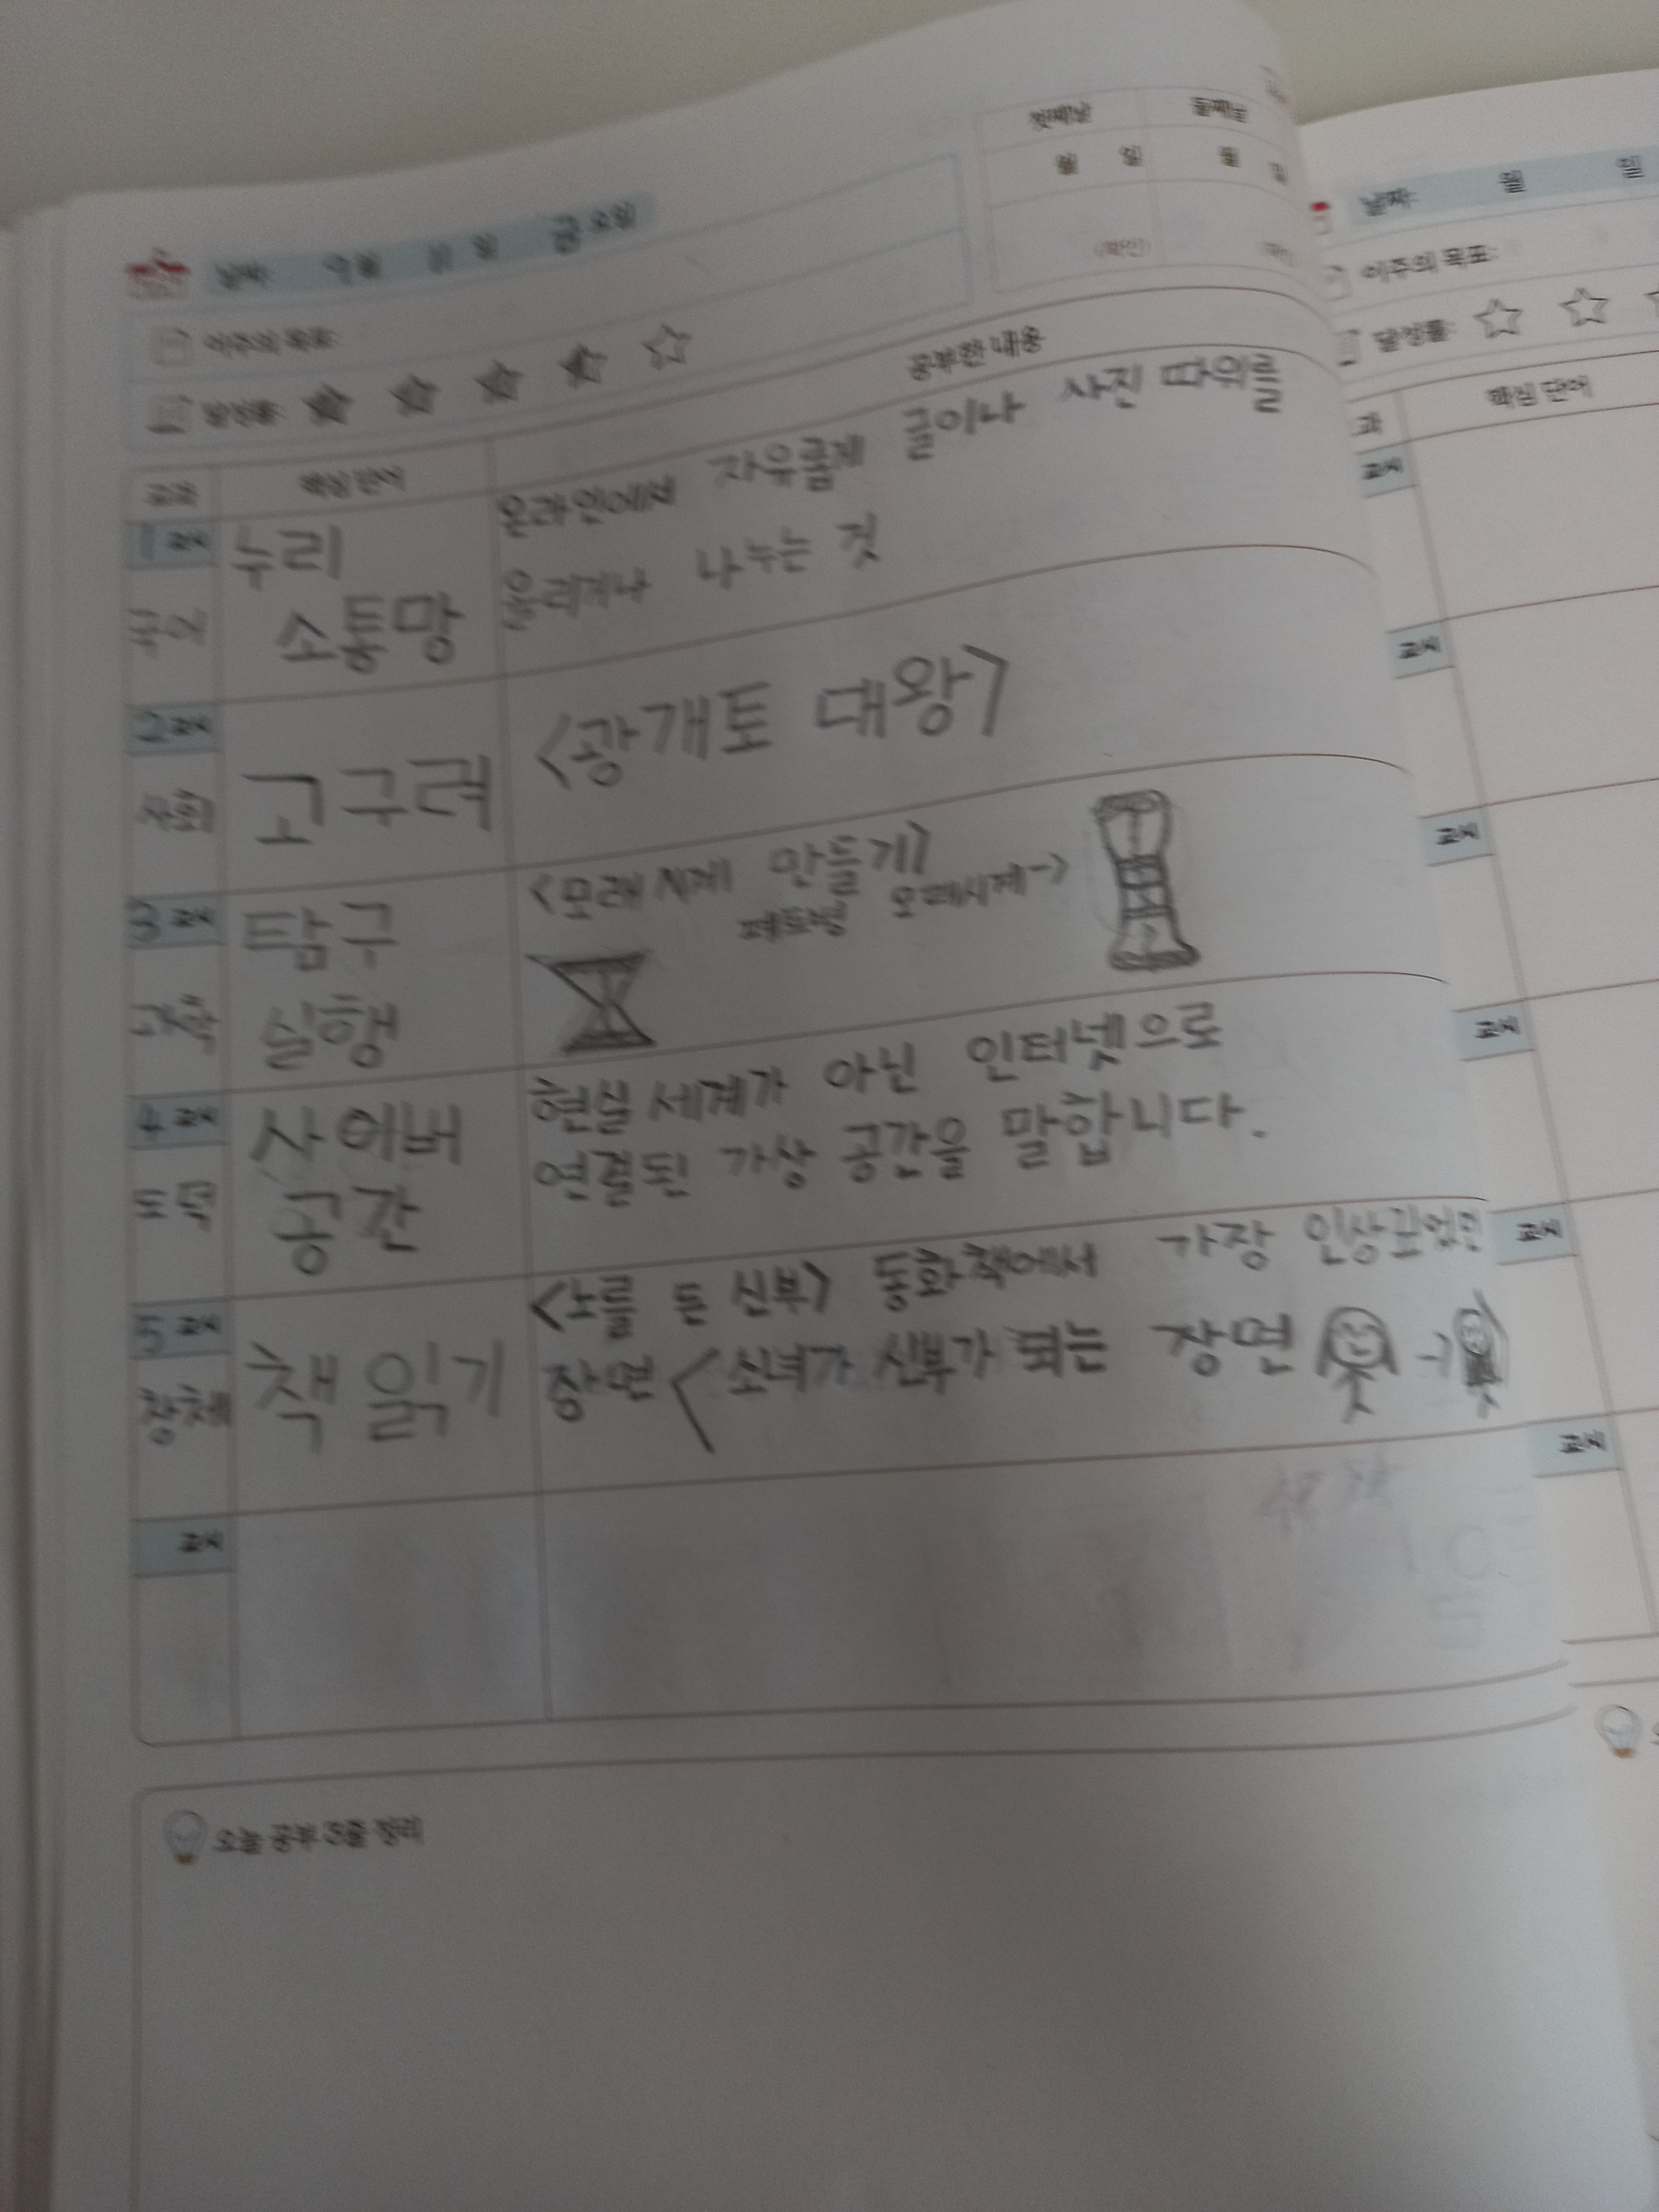 첫째날 둘째날
월 일 월 일
(확인) (확인)
날짜: 9월 11일 금요일
이주의 목표:
달성률:
교과 핵심 단어 공부한 내용
1교시 국어
누리
소통망
온라인에서 자유롭게 글이나 사진 따위를
올리거나 나누는 것
2교시 사회
고구려
<광개토 대왕>
3교시 과학
탐구
실행
<모래 시계 만들기>
페트병 모래시계->
4교시 도덕
사이버
공간
현실 세계가 아닌 인터넷으로
연결된 가상 공간을 말합니다.
5교시 창체
책 읽기
<노를 든 신부> 동화책에서 가장 인상깊었던
장면 < 소녀가 신부가 되는 장면
교시
오늘 공부 3줄 정리
날짜: 월 일
이주의 목표:
달성률:
과 핵심 단어
교시
교시
교시
교시
교시
교시